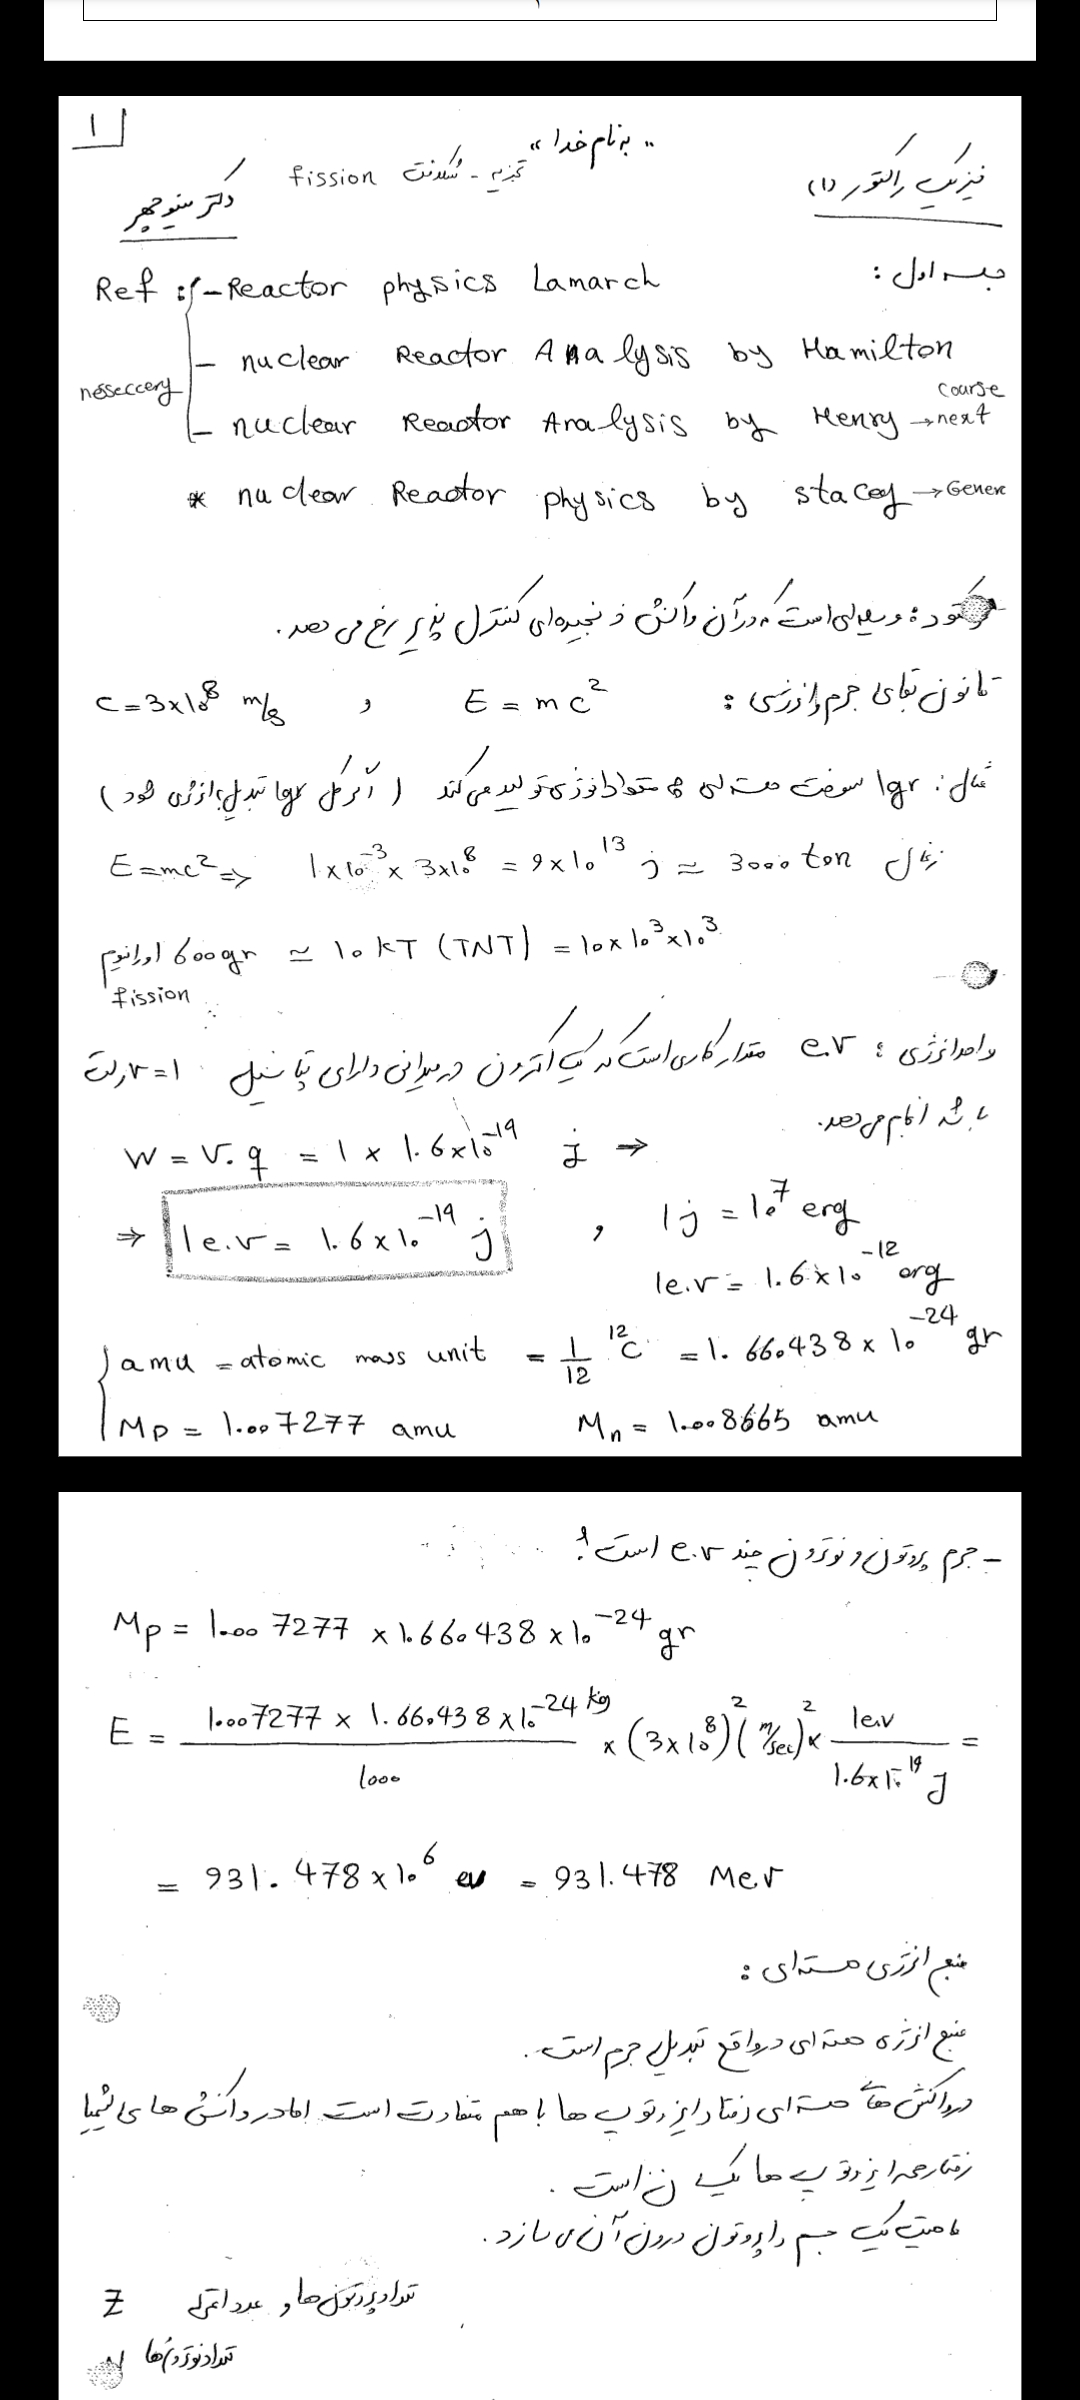 ۱
„ به نام خدا "
فیزیک راکتور (۱)
تجزیه - شکافت fission
دکتر منوچهر
جلسه اول :
Ref : - Reactor physics Lamarch
- nuclear Reactor Analysis by Hamilton
nesseccery
- nuclear Reactor Analysis by Henry → next course
* nuclear Reactor physics by stacey → Gener
راکتور : وسیله‌ای است که در آن واکنش زنجیره‌ای کنترل پذیر رخ می دهد.
قانون بقای جرم و انرژی : E = mc² , C = 3×10⁸ m/s
مثال : 1gr سوخت هسته ای چه مقدار انرژی تولید می کند ( اگر کل 1gr تبدیل به انرژی شود )
E = mc² ⇒ 1×10⁻³ × 3×10⁸ = 9×10¹³ j ≃ 3000 ton زغال
اورانیوم 600gr ≃ 10 kT (TNT) = 10×10³×10³
fission
واحد انرژی : e.v مقدار کاری است که یک الکترون در میدانی دارای پتانسیل V=1 ولت
باشد انجام می دهد.
W = V. q = 1 × 1.6×10⁻¹⁹ j ⇒
⇒ 1e.v = 1.6×10⁻¹⁹ j , 1j = 10⁷ erg
1e.v = 1.6×10⁻¹² erg
amu = atomic mass unit = 1/12 ¹²C = 1.660438×10⁻²⁴ gr
Mp = 1.007277 amu Mn = 1.008665 amu
- جرم پروتون و نوترون چند e.v است؟
Mp = 1.007277 × 1.660438×10⁻²⁴ gr
E = 1.007277 × 1.660438×10⁻²⁴ kg / 1000 × (3×10⁸)² (m/sec)² × 1e.v / 1.6×10⁻¹⁹ J =
= 931.478×10⁶ ev = 931.478 Mev
منبع انرژی هسته‌ای :
منبع انرژی هسته ای در واقع تبدیل جرم است.
در واکنش های هسته ای رفتار ایزوتوپ ها با هم متفاوت است اما در واکنش های شیمیا
رفتار همه ایزوتوپ ها یکسان است.
ماهیت یک جسم را پروتون درون آن می سازد.
تعداد پروتون ها و عدد اتمی Z
تعداد نوترون‌ها N